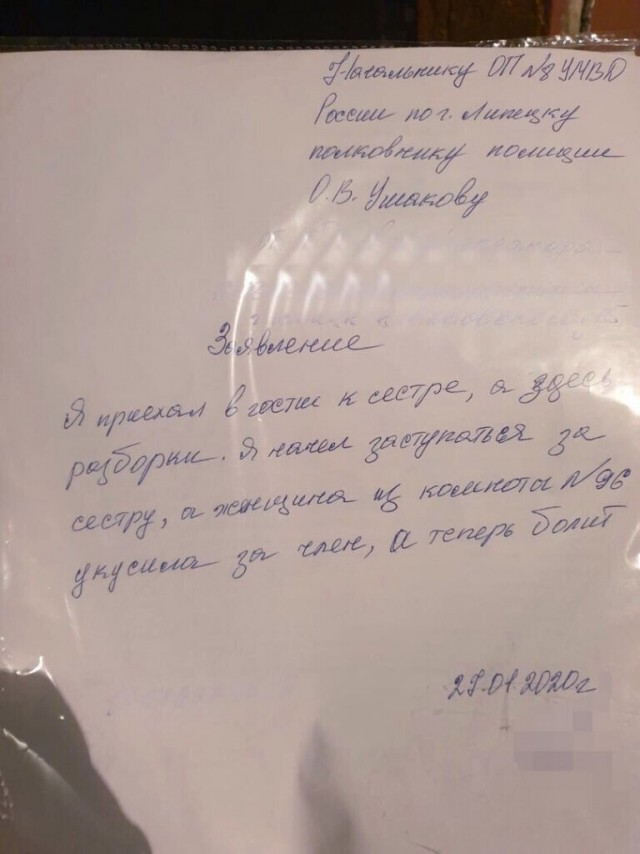 Начальнику ОП №8 УМВД
России по г. Липецку
полковнику полиции
О.В. Ушакову
Заявление
Я приехал в гости к сестре, а здесь
разборки. Я начел заступаться за
сестру, а женщина из комноты №96
укусила за член, а теперь болит
27.01.2020г